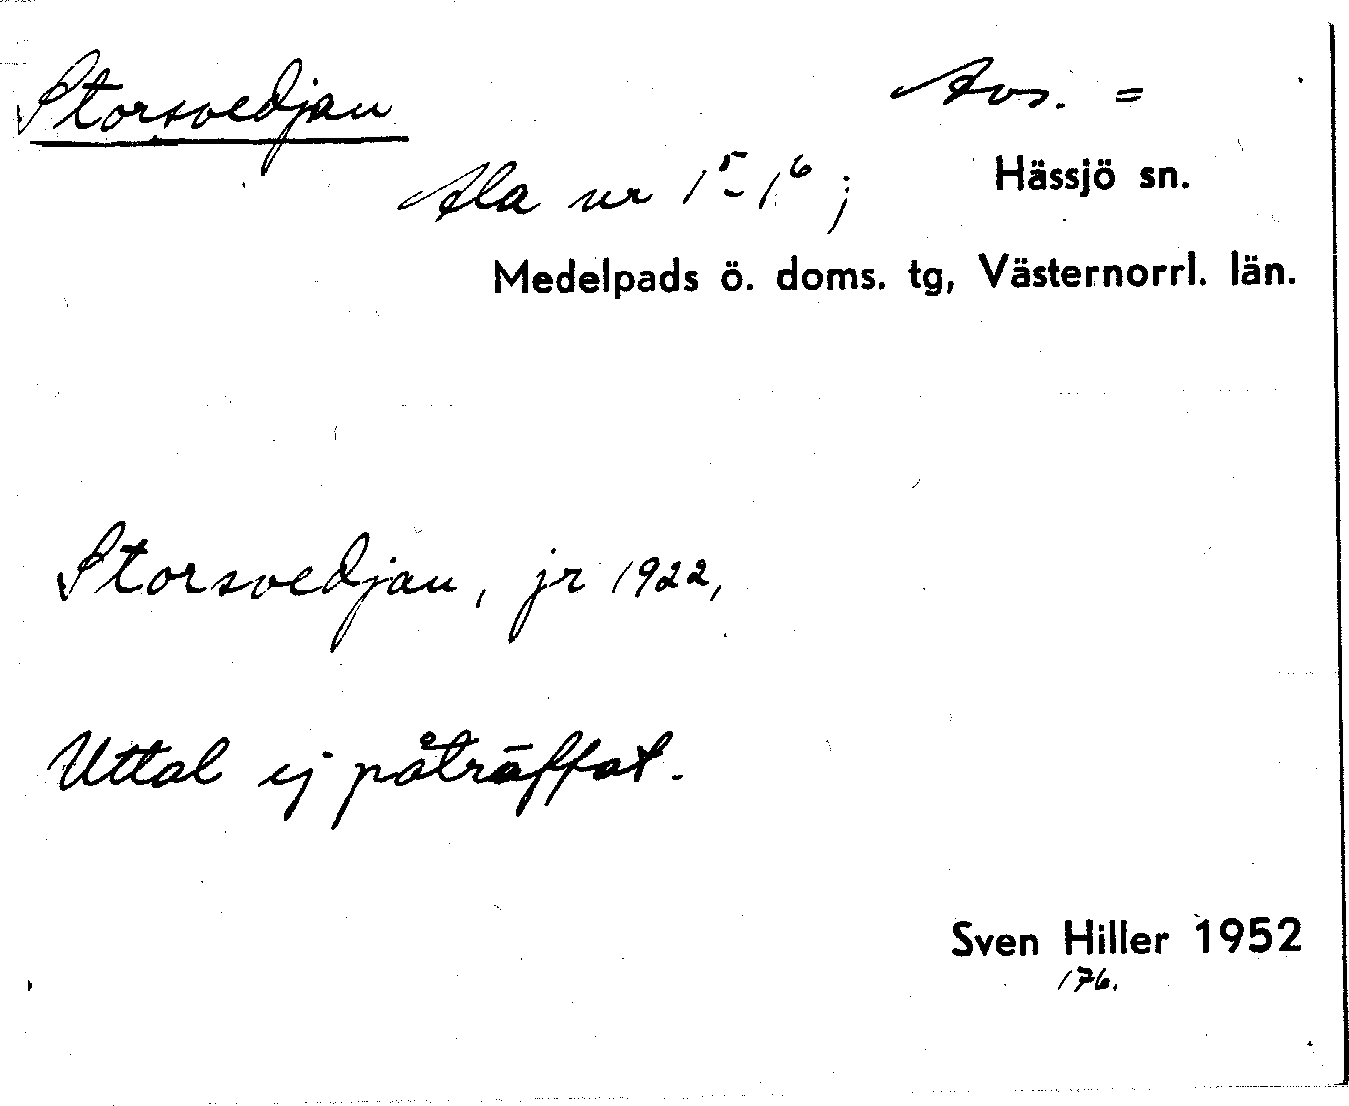 Storsvedjan Avs. =
Ala nr 1⁵-1⁶ ; Hässjö sn.
Medelpads ö. doms. tg, Västernorrl. län.
Storsvedjan, jr 1922,
Uttal ej påträffat.
Sven Hiller 1952
176.